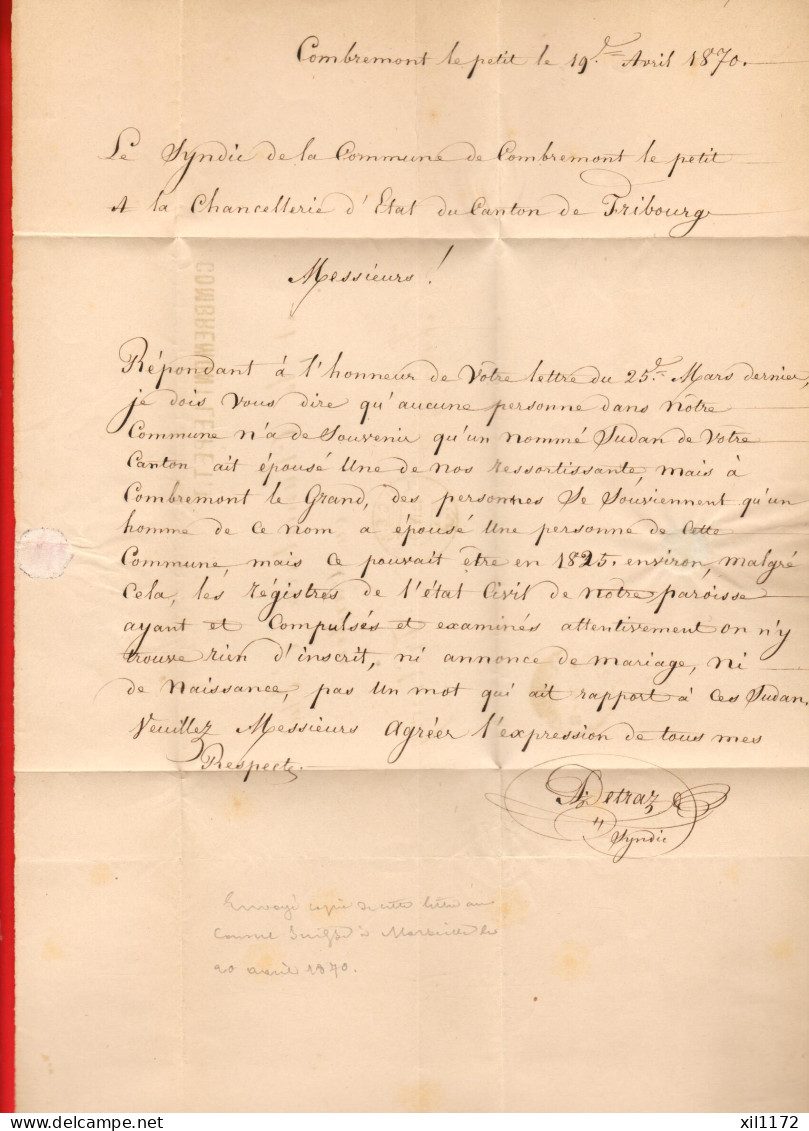 Combremont le petit le 19.e Avril 1870.
Le Syndic de la Commune de Combremont le petit
A la Chancellerie d'Etat du Canton de Fribourg
Messieurs!
Répondant à l'honneur de Vôtre lettre du 25.e Mars dernier,
je dois Vous dire qu'aucune personne dans nôtre
Commune n'a de Souvenir qu'un nommé Judan de Votre
Canton ait épousé Une de nos ressortissante, mais à
Combremont le Grand, des personnes Se Souviennent qu'un
homme de ce nom a épousé Une personne de Cette
Commune, mais ce pouvait être en 1825. environ, malgré
Cela, les régistres de l'état Civil de Notre paroisse
ayant et Compulsés et examinés attentivement on n'y
trouve rien d'inscrit, ni annonce de mariage, ni
de Naissance, pas Un mot qui ait rapport à Ces Judan.
Veuillez Messieurs Agréer l'expression de tous mes
Respects.
Detraz
Syndic
Envoyé copie de cette lettre au
Consul Suisse à Marseille le
20 avril 1870.
COMBREMONT LE PET
delcampe.net
xil1172